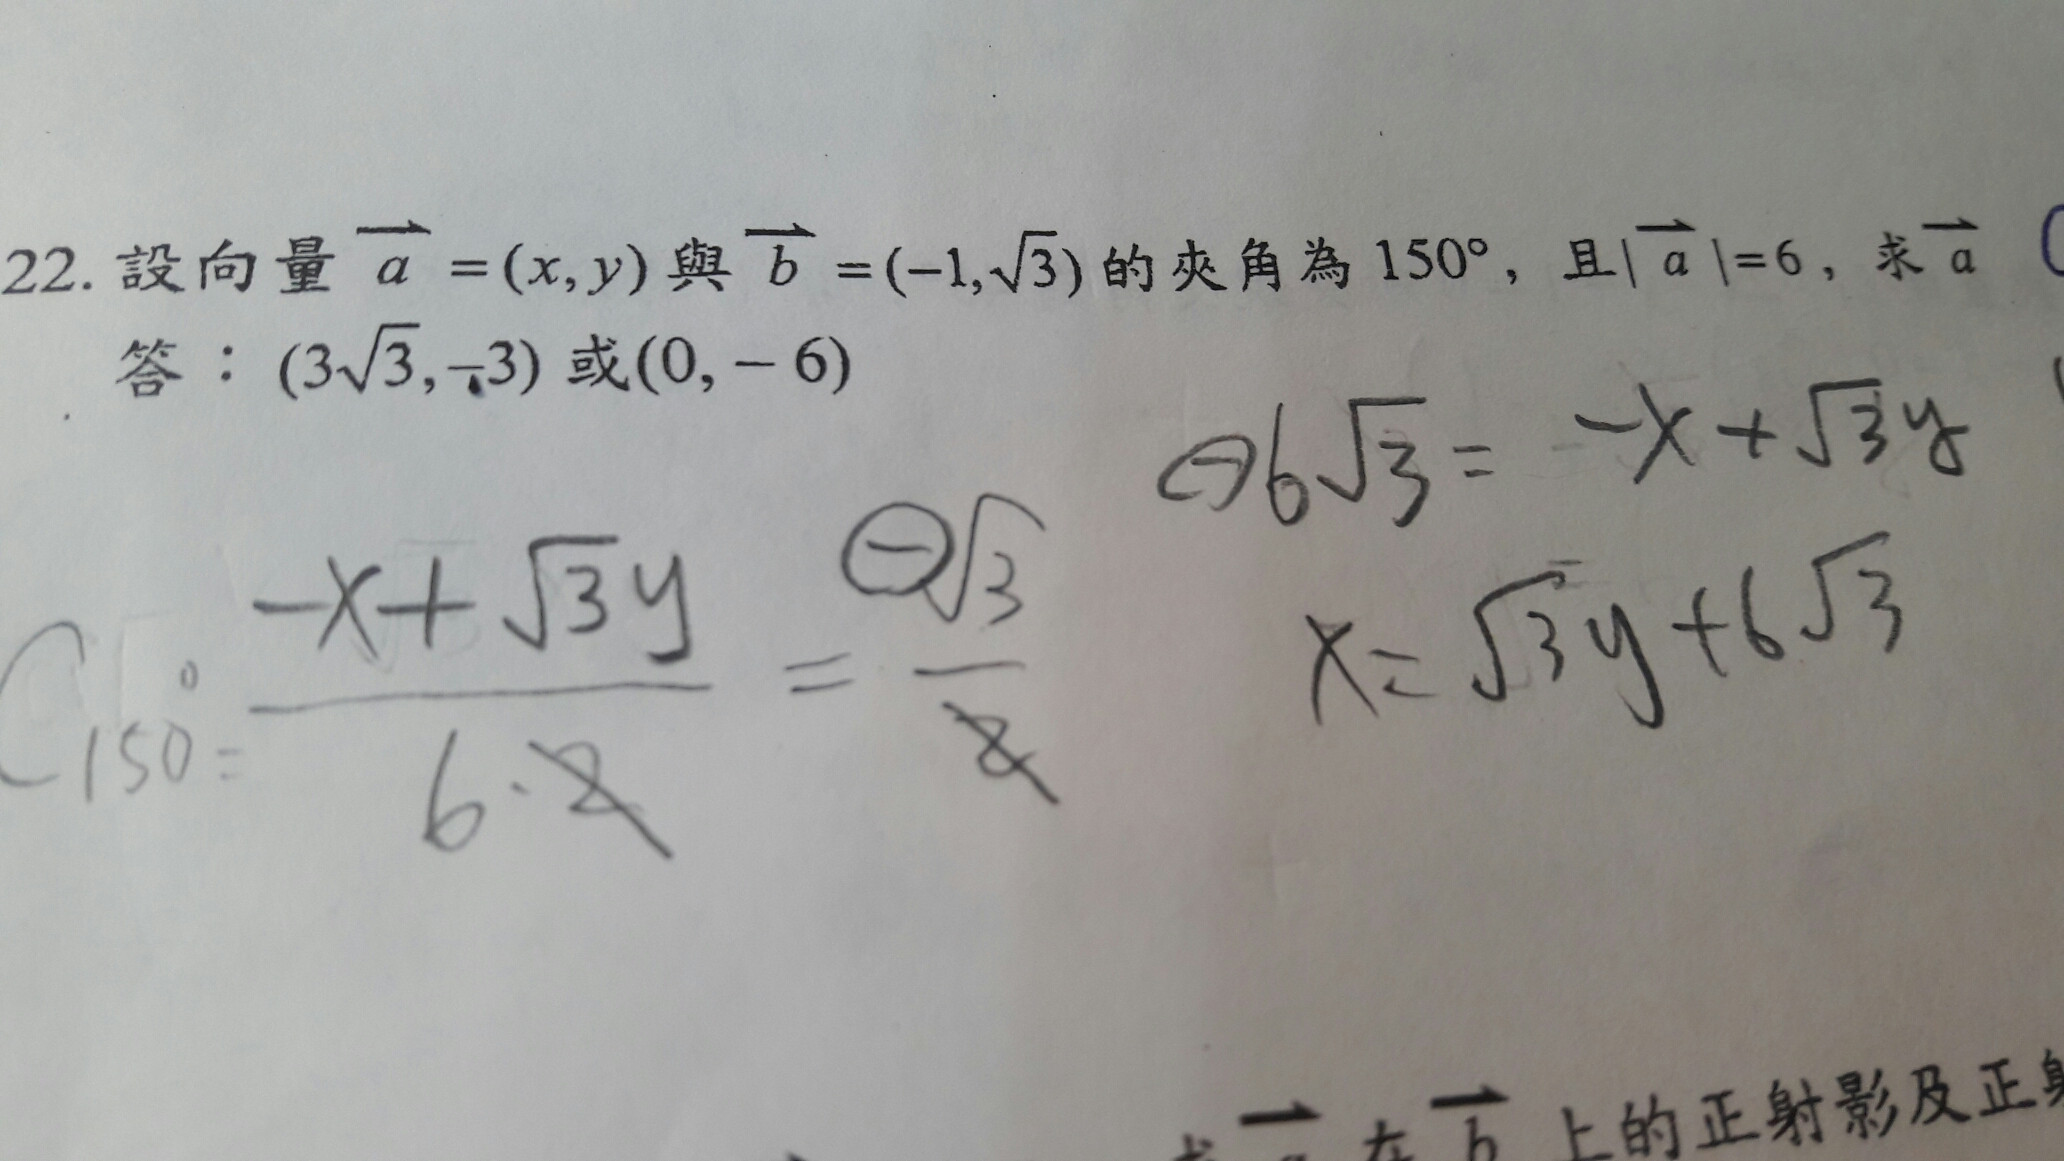 22. 設向量 a⃗ = (x, y) 與 b⃗ = (−1, √3) 的夾角為 150°，且| a⃗ |= 6，求 a⃗
答：(3√3, −3) 或 (0, − 6)
⊖6√3 = −x + √3y
x = √3y + 6√3
C150° = (−x + √3y)/(6·2) = ⊖√3/2
在 b⃗ 上的正射影及正